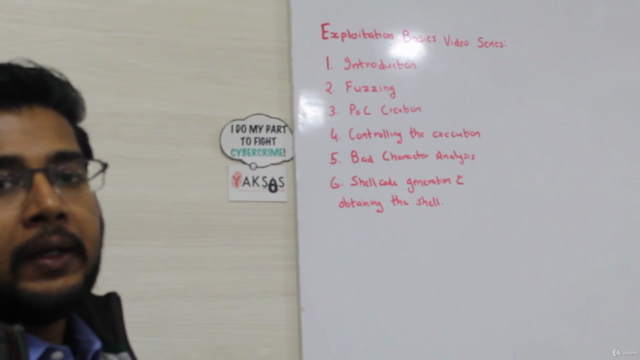 Exploitation Basics Video Series:
1. Introduction
2. Fuzzing
3. PoC Creation
4. Controlling the execution
5. Bad Character Analysis
6. Shellcode generation &
obtaining the shell.
I DO MY PART
TO FIGHT
CYBERCRIME!
YAKSAS